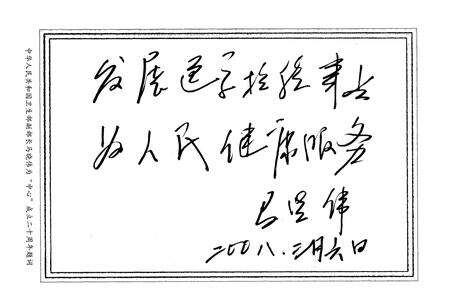 中华人民共和国卫生部副部长马晓伟为“中心”成立二十周年题词
发展医学检验事业
为人民健康服务
马晓伟
二〇〇八.二月六日